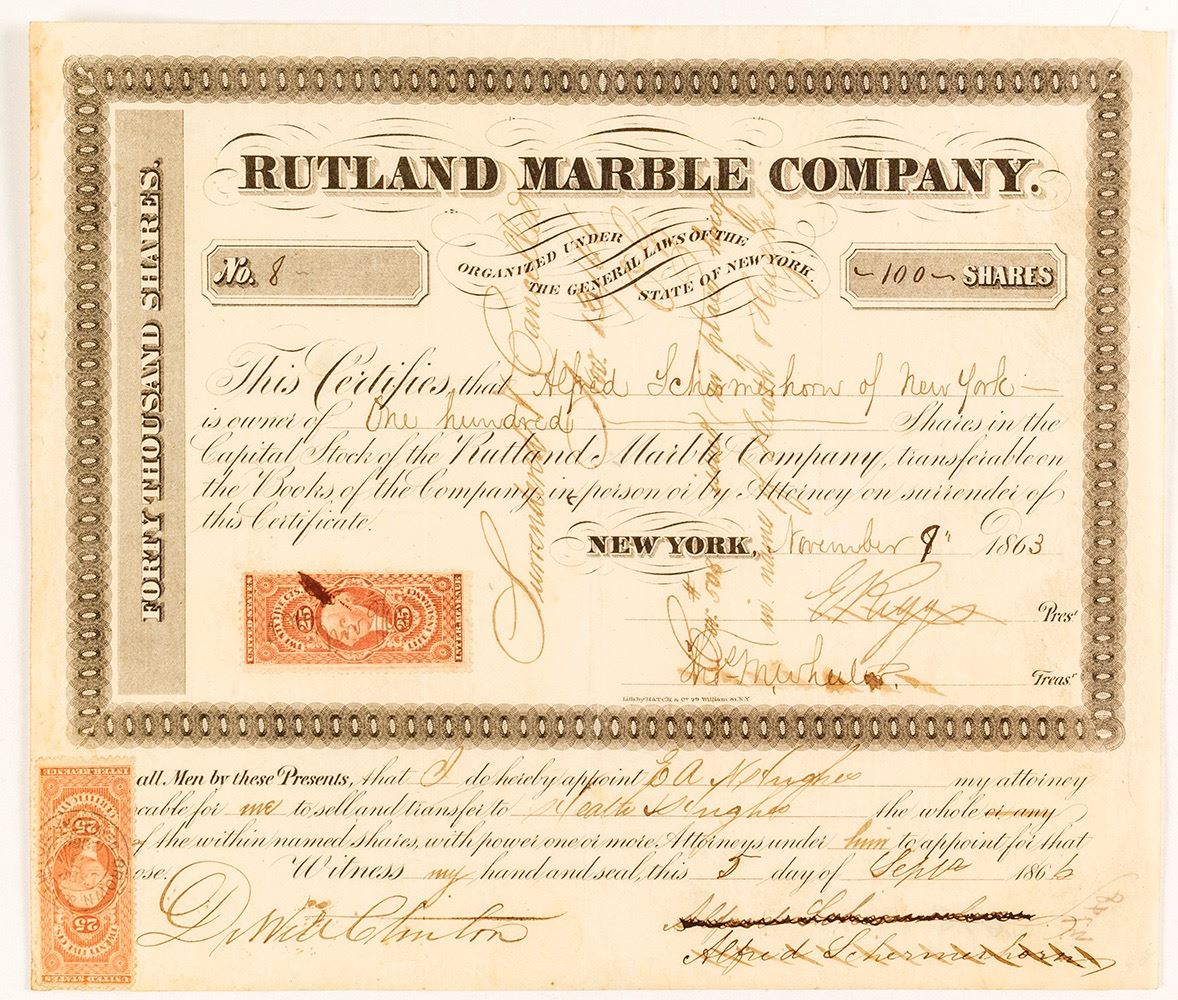 RUTLAND MARBLE COMPANY.
ORGANIZED UNDER
THE GENERAL LAWS OF THE
STATE OF NEW YORK.
No. 8
100 SHARES
FORTY THOUSAND SHARES.
This Certifies, that Alfred Schermerhorn of New York
is owner of One hundred Shares in the
Capital Stock of the Rutland Marble Company, transferable on
the Books, of the Company in person or by Attorney on surrender of
this Certificate.
NEW YORK, November 9" 1863
E Riggs Prest
Jno. M. Wheeler. Treasr
Lith by HATCH & Co 29 William St. N.Y.
Surrendered & Cancelled
issued in place
in name of Heath & Hughes
UNITED STATES
TWENTY FIVE CTS.
25
25
INTER. REVENUE
all Men by these Presents, that I do hereby appoint E A Hughes my attorney
cable for me to sell and transfer to Heath & Hughes the whole or any
of the within named shares, with power one or more Attorneys under him to appoint for that
ose. Witness my hand and seal, this 5 day of Septr 1866
DeWitt Clinton
Alfred Schermerhorn
Alfred Schermerhorn
25
25